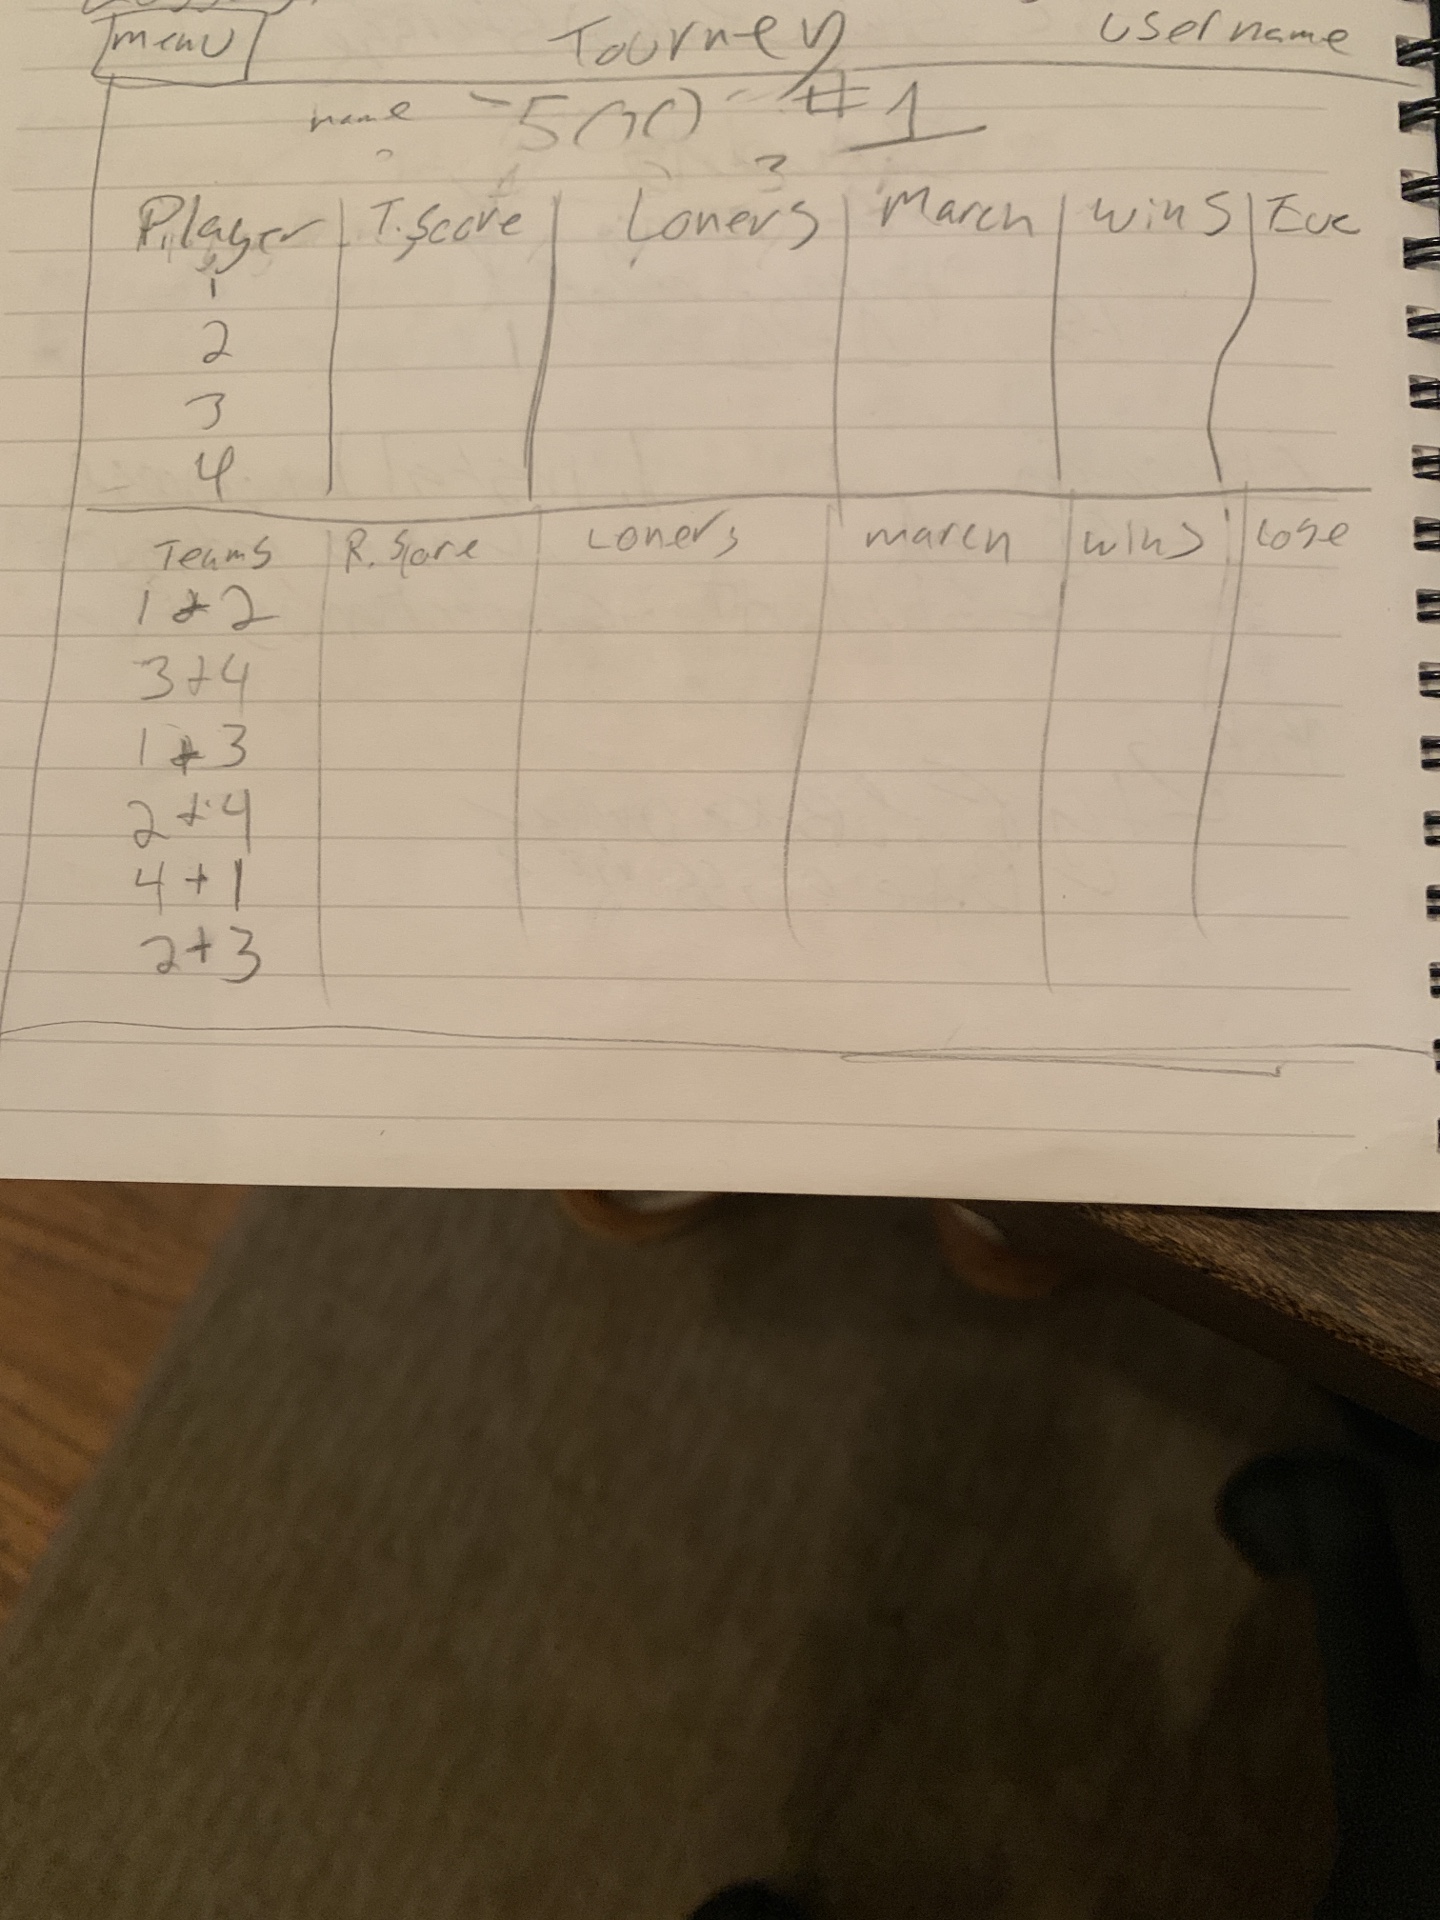 menu Tourney username
name - 500 - #1
3
Player T.Score Loners March wins Euc
1
2
3
4
Teams R. Score Loners march wins Lose
1 + 2
3 + 4
1 + 3
2 + 4
4 + 1
2 + 3